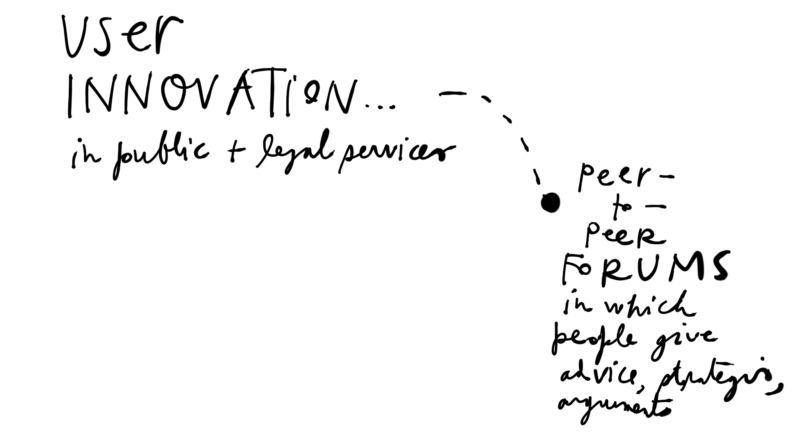 User
INNOVATION...
in public + legal services
peer-
to-
PEER
FORUMS
in which
people give
advice, strategies,
arguments